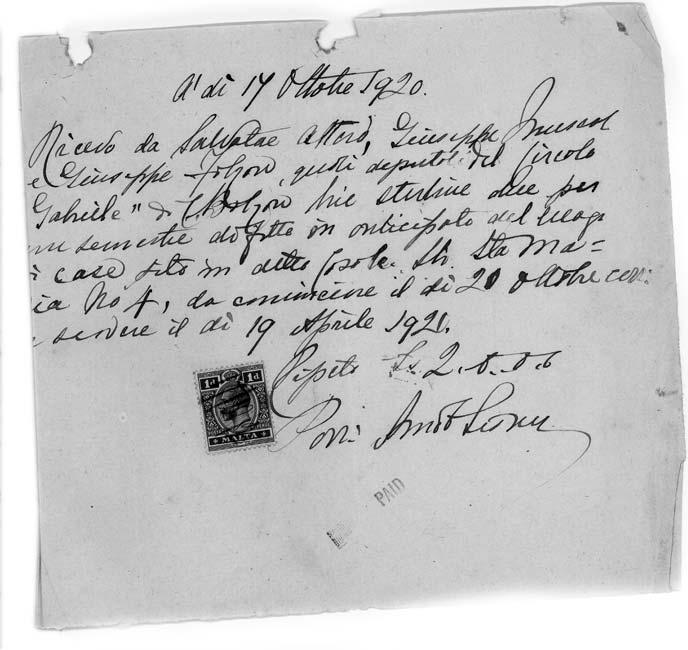 A' dì 17 Ottobre 1920.
Ricevo da Salvatore Attard, Giuseppe Muscat
e Giuseppe quali deputati del Circolo
Gabriele" di lire sterline due per
un semestre di fitto in anticipato del luogo
case sito in detto Casale Str. Sta Ma=
ria No 4, da cominciare il dì 20 Ottobre corr:
e scadere il dì 19 Aprile 1921.
Ripeto Ls. 2.0.0
1d 1d
MALTA
PAID